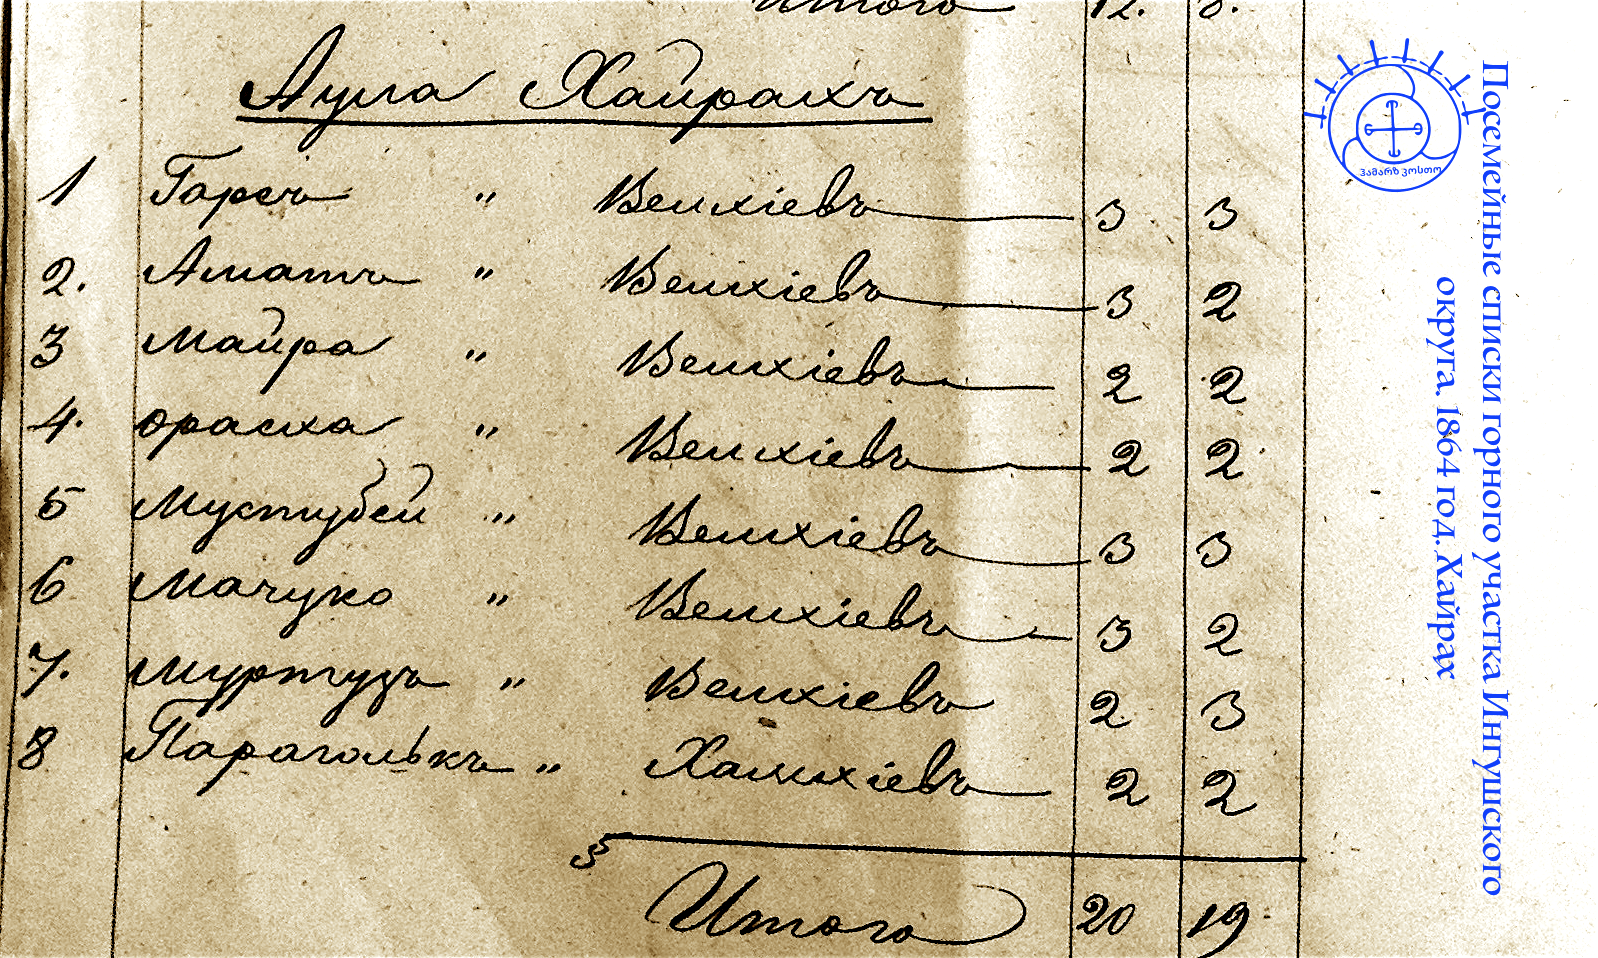 Итого 12. 8.
Аула Хайрахъ
1 Гарсъ " Велхіевъ 3 3
2. Аматъ " Велхіевъ 3 2
3 Майра " Велхіевъ 2 2
4. Орасха " Велхіевъ 2 2
5 Мустубей " Велхіевъ 3 3
6 Мачуко " Велхіевъ 3 2
7. Муртузъ " Велхіевъ 2 3
8 Параголькъ " Халухіевъ 2 2
Итого 20 19.
ჰამარზ კოსთო
Посемейные списки горного участка Ингушского
округа. 1864 год. Хайрах